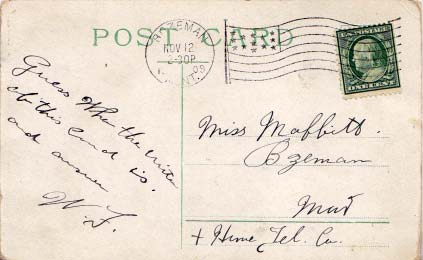 POST CARD
BOZEMAN
NOV 12
2-30P
MONT.
U.S. POSTAGE
ONE CENT
Guess Who the writer
of this card is.
and answer
W. F.
Miss Maffitt.
Bzeman
Mont
+ Home Tel. Co.